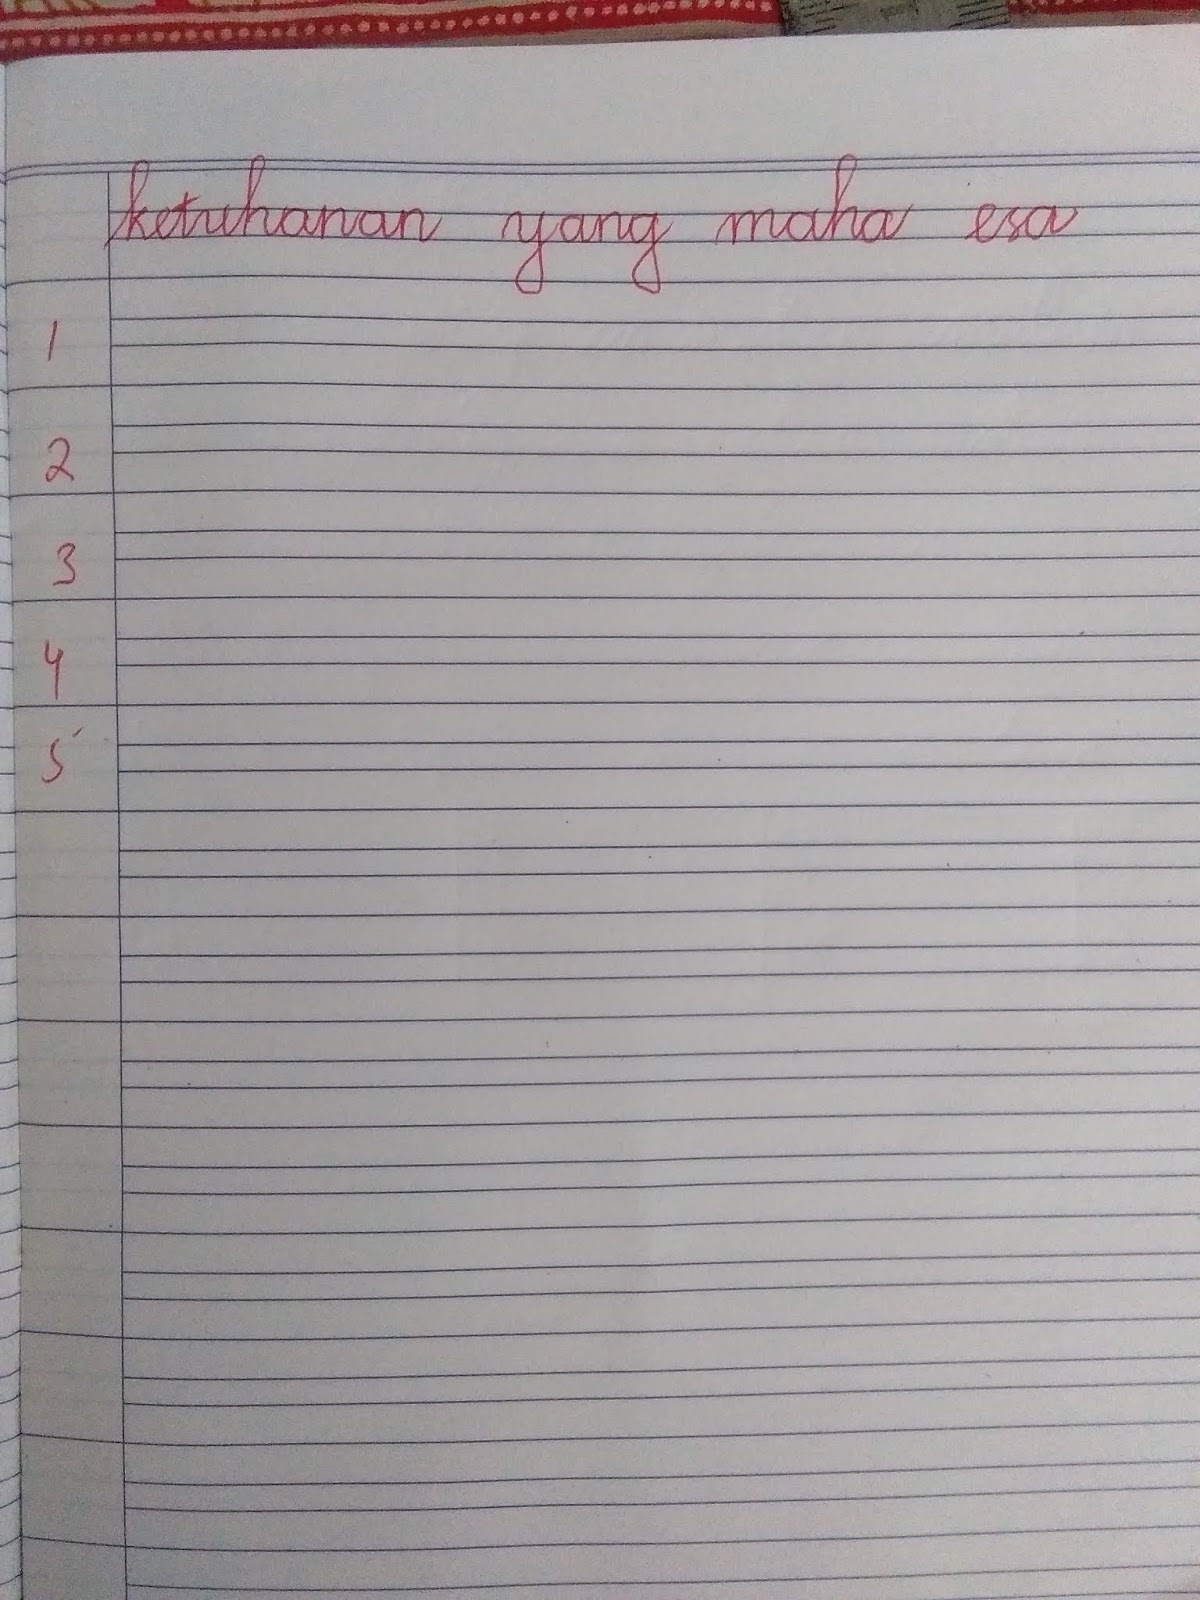 ketuhanan yang maha esa
1
2
3
4
5